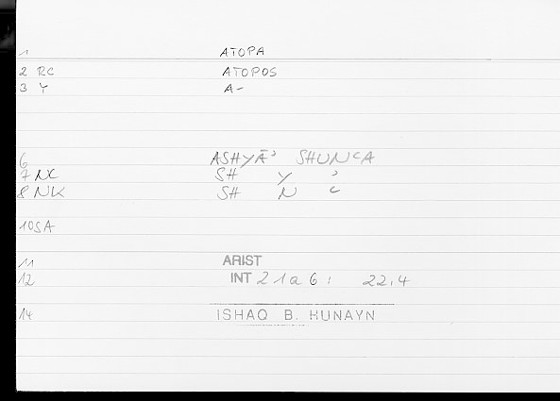 1 ATOPA
2 RC ATOPOS
3 Y A-
6 ASHYĀʾ SHUNʿA
7 NC SH Y ʾ
8 NK SH N ʿ
10 SA
11 ARIST
12 INT 21a6: 22.4
14 ISHAQ B. HUNAYN